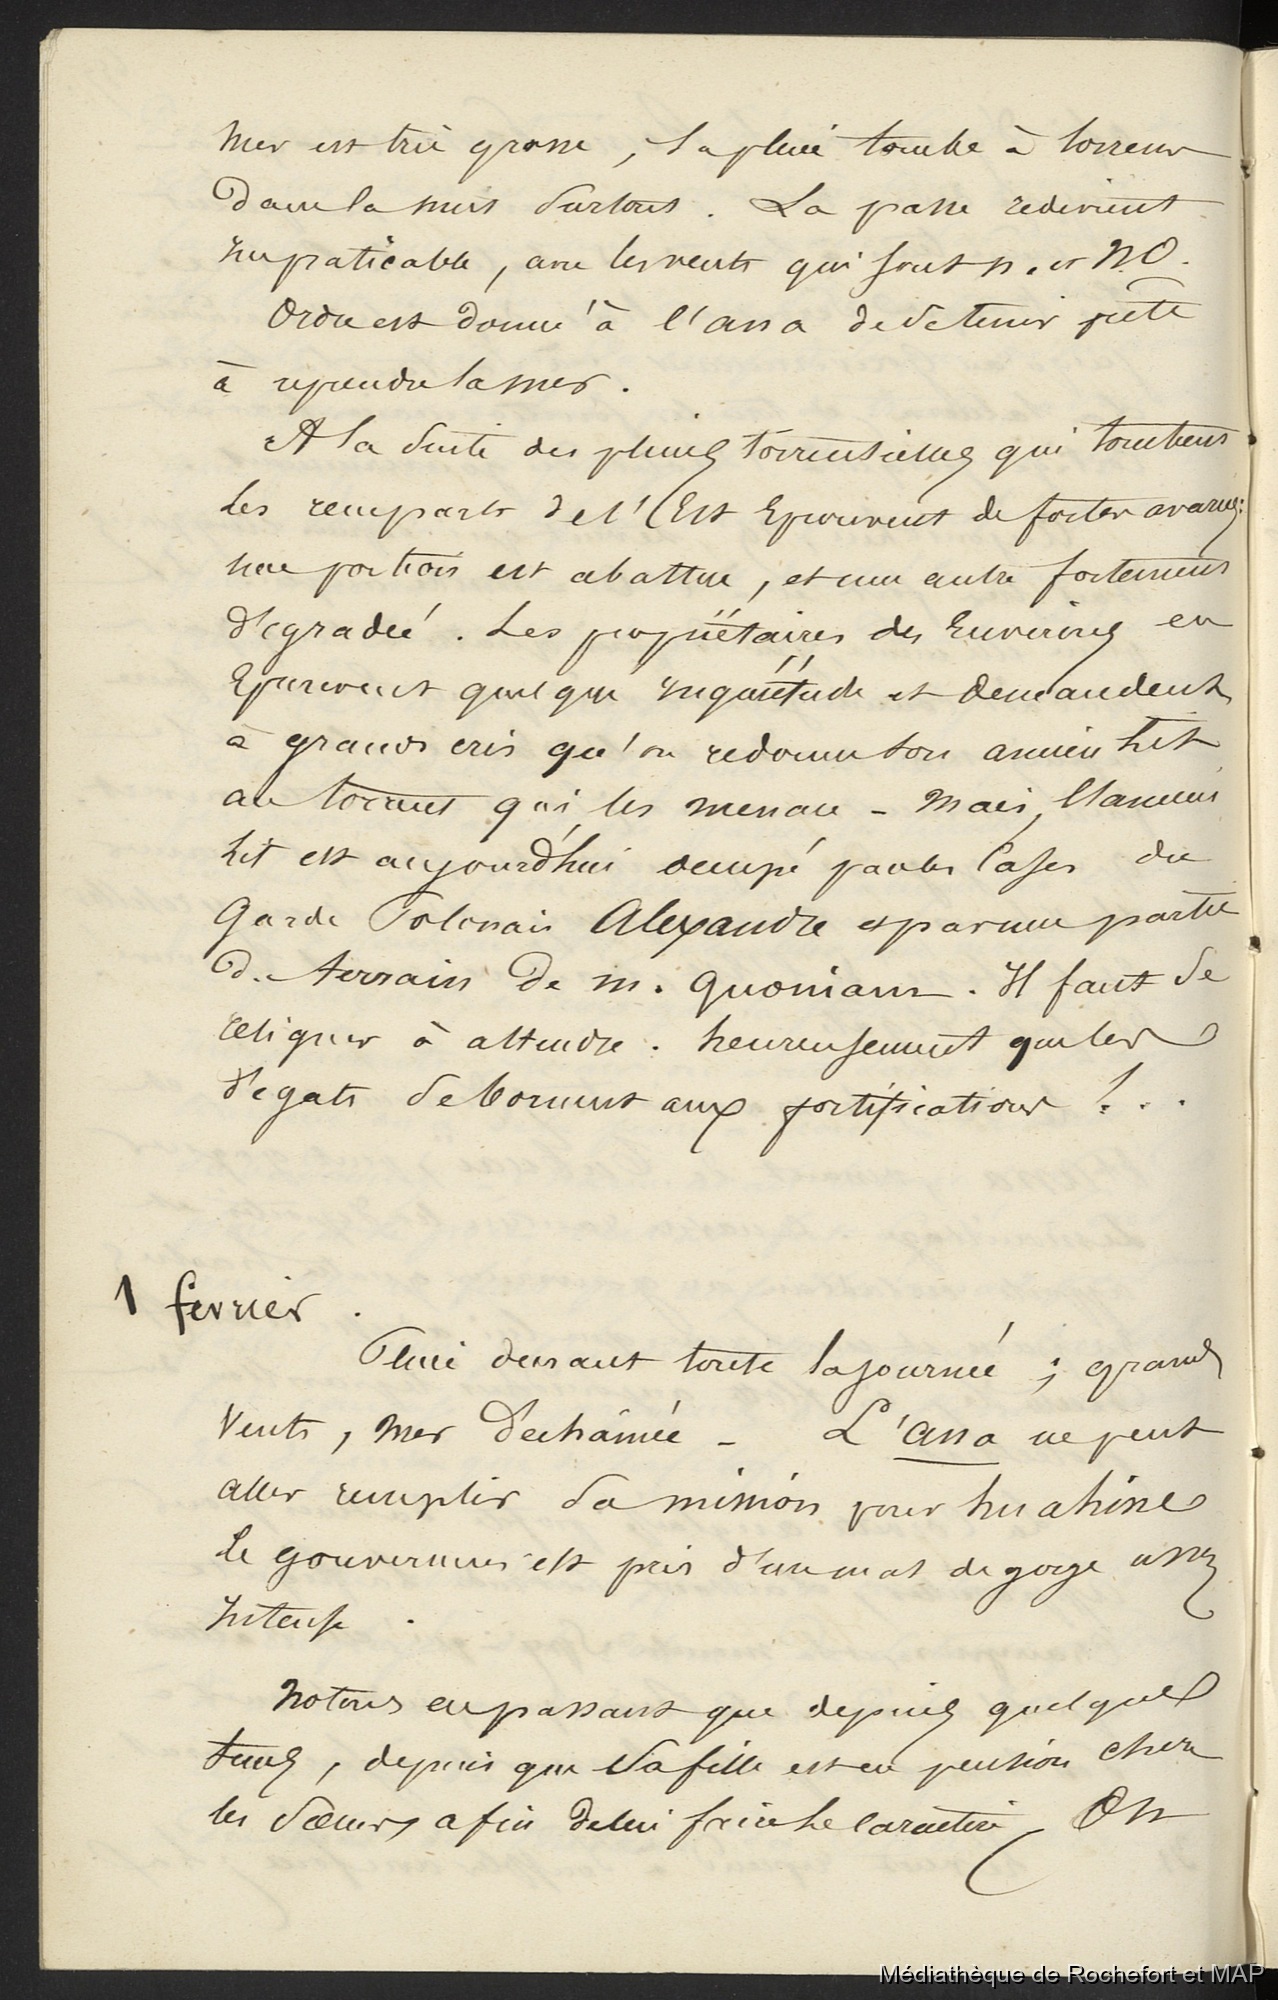 mer est très grosse, la pluie tombe à torrent
dans la nuit surtout. La passe redevient
impraticable, avec les vents qui sont N. et N.O.
Ordre est donné à l'assa de se tenir prête
à reprendre la mer.
A la suite des pluies torrentielles qui tombent
les remparts de l'Est éprouvent de fortes avaries:
une portion est abattue, et une autre fortement
dégradée. Les propriétaires des environs en
éprouvent quelque inquiétude et demandent
à grands cris qu'on redonne son ancien lit
au torrent qui les menace - Mais l'ancien
lit est aujourd'hui occupé par les cases du
Garde Polonais Alexandre et par une partie
de terrain de M. Quoniam. Il faut se
résigner à attendre. heureusement que les
dégats se bornent aux fortifications !..
1 fevrier.
Pluie durant toute la journée ; grands
vents, mer déchainée - L'assa ne peut
aller remplir sa mission pour huahine
le gouverneur est pris d'un mal de gorge assez
intense.
Notons en passant que depuis quelques
temps, depuis que sa fille est en pension chez
les sœurs afin de lui faire le caractère, Ost
Médiathèque de Rochefort et MAP